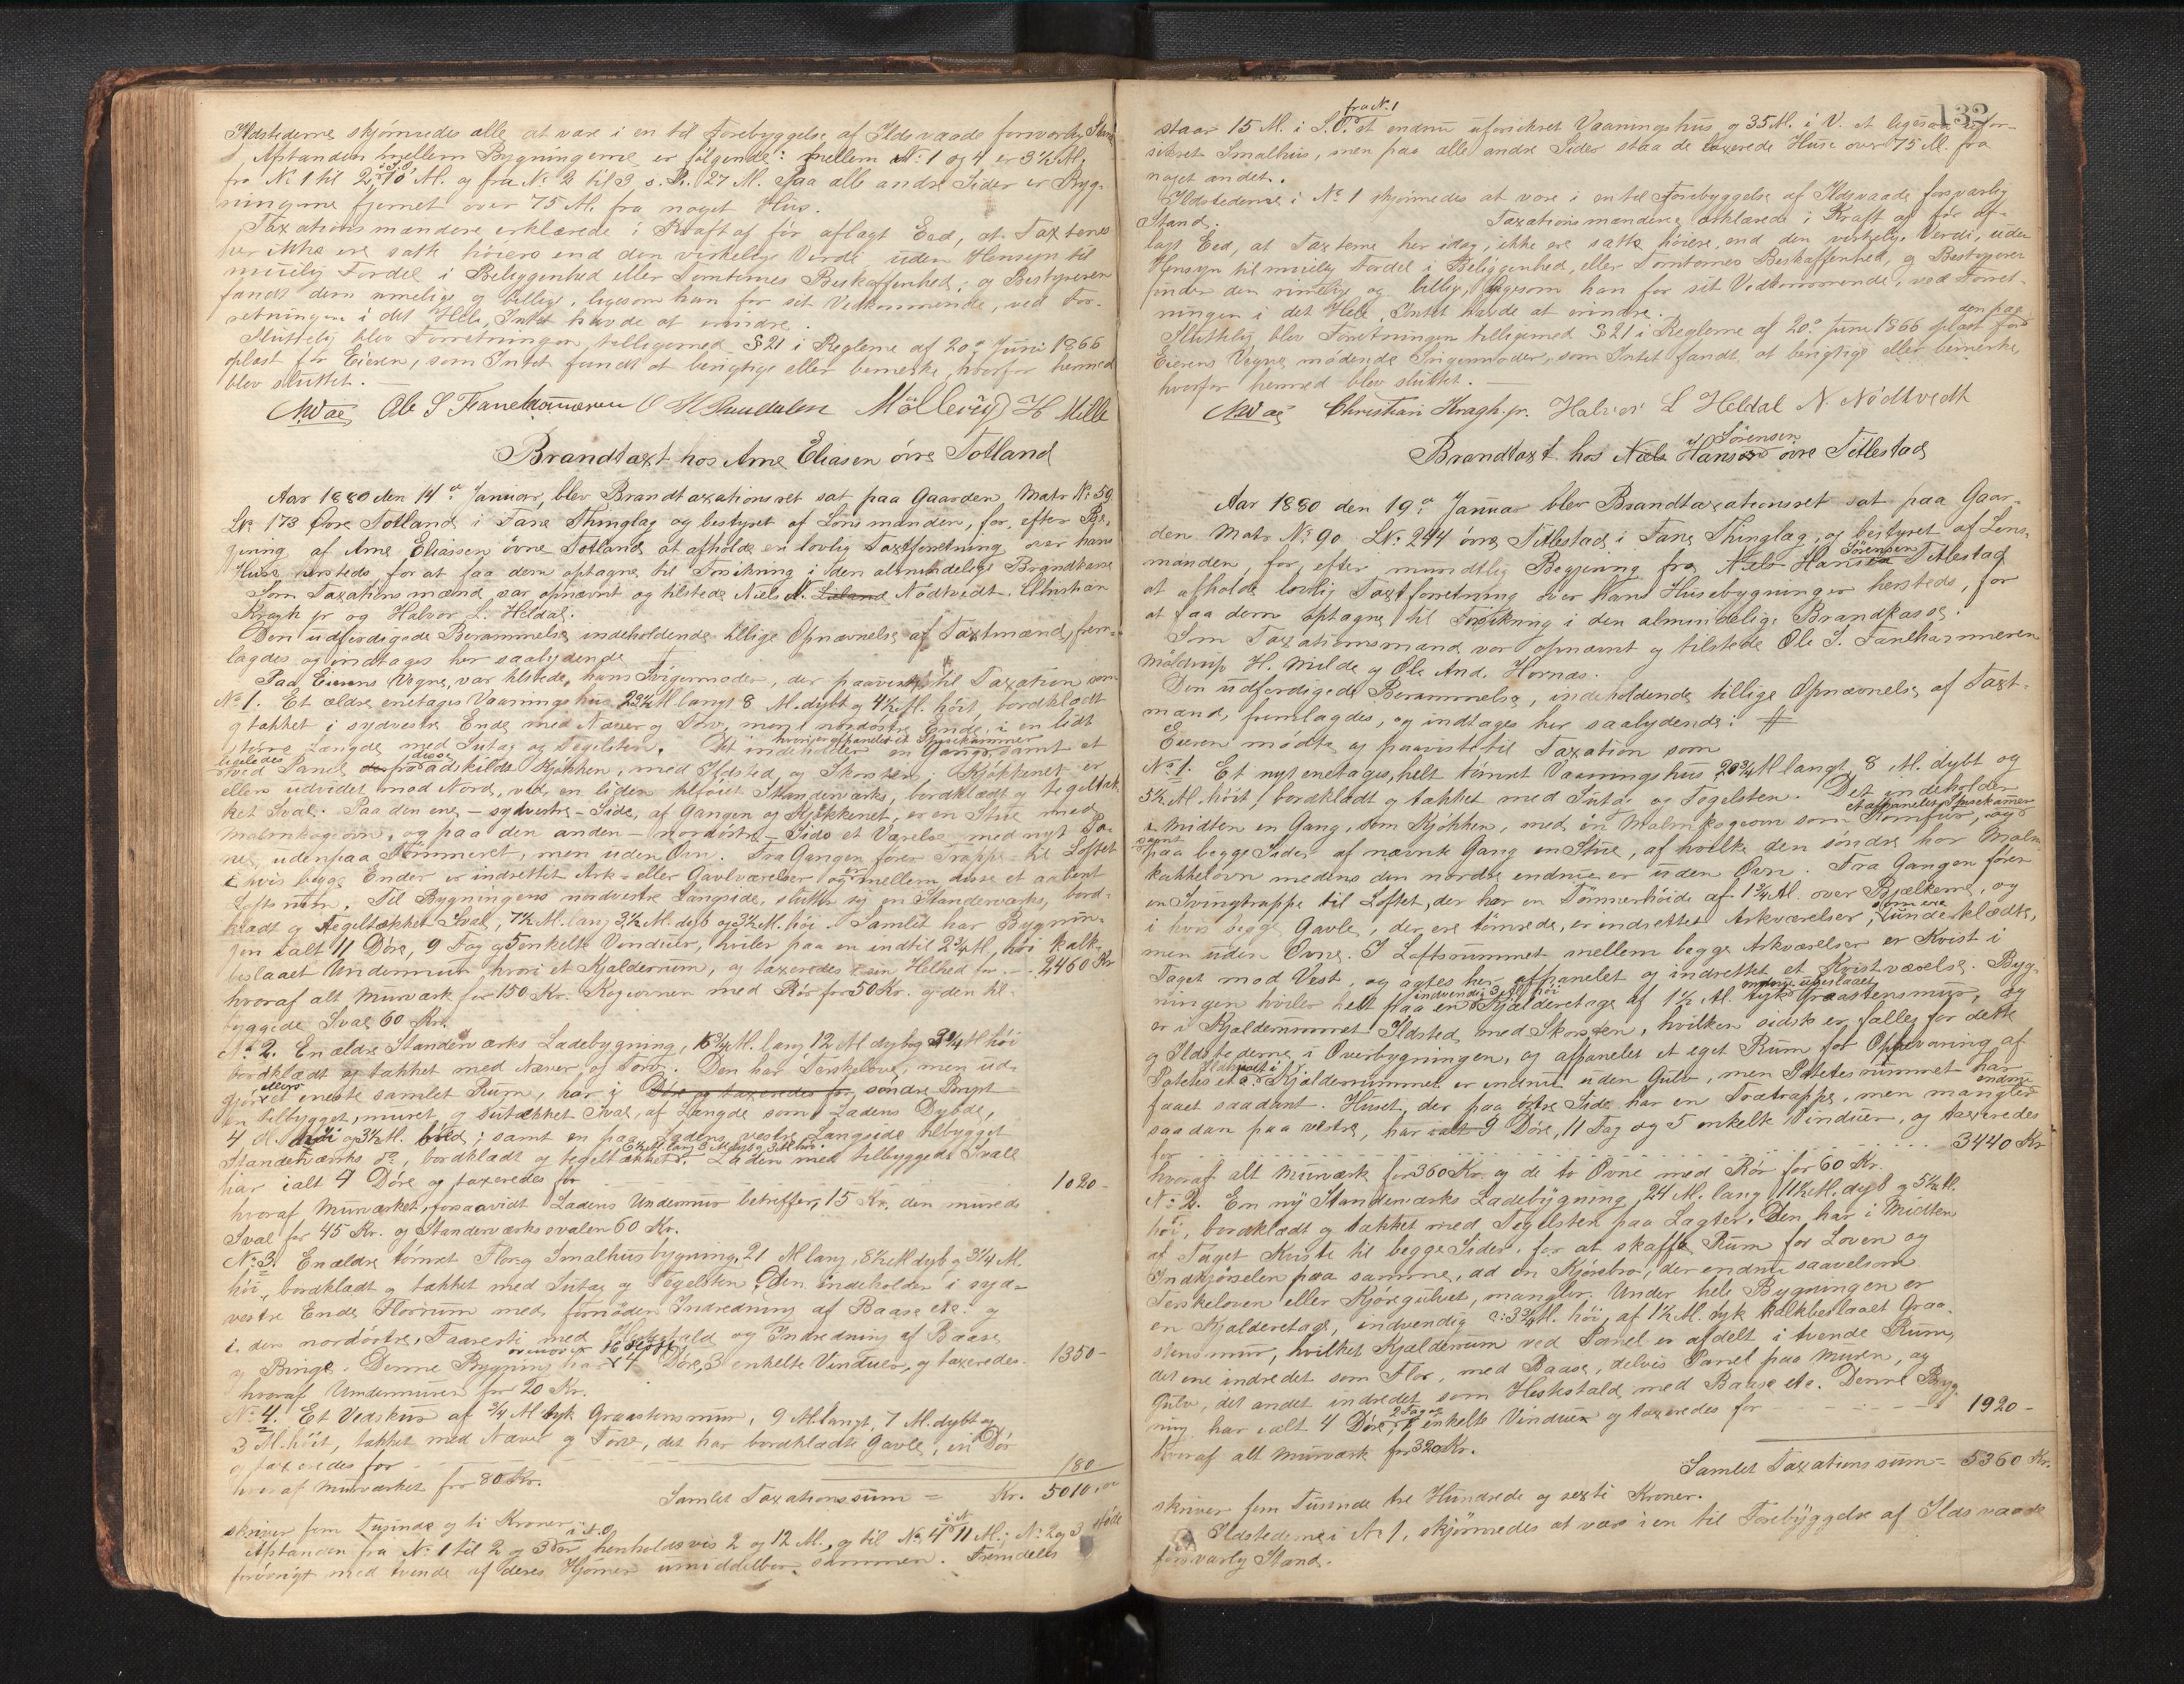 Ildstederne skjønnedes alle at være i en til Forebyggelse af Ildsvaade forsvarlig Stand
Afstanden mellem Bygningerne er følgende: mellem No 1 og 4 er 3½ M.
fra No 1 til 2 i S.O. 10 M. og fra No 2 til 3 27 M. Paa alle andre Sider er Byg-
ningerne fjernet over 75 M. fra noget Hus.
Taxationsmændene erklærede i Kraft af før aflagt Eed, at Taxterne
her ikke ere satte høiere end den virkelige Værdi uden Hensyn til
muelig Fordel i Beliggenhed eller Tomternes Beskaffenhed, og Bestyreren
fandt dem rimelige og billige, ligesom han for set Vedkommende, ved For-
retningen i det Hele, Intet havde at erindre.
Sluttelig blev Forretningen tilligemed § 21 i Reglerne af 20de Juni 1866
oplæst for Eieren, som Intet fandt at berigtige eller bemerke, hvorfor hermed
blev sluttet.
Ole S Fanehammeren Møllerup H Milde
Brandtaxt hos Arne Eliasen øvre Totland
Aar 1880 den 14de Januar, blev Brandtaxationsret sat paa Gaarden Matr No 59
LNo 173 Øvre Totland i Fane Thinglag og bestyret af Lensmanden, for, efter Be-
gjæring af Arne Eliassen øvre Totland at afholde en lovlig Taxtforretning over hans
Huse hersteds for at faa dem optagne til Forsikring i den almindelige Brandkasse
Som Taxationsmænd var opnævnt og tilstede Niels N. Nødtvedt, Christian
Kragh jr og Halvor L. Heldal.
Den udfærdigede Berammelse indeholdende tillige Opnævnelse af Taxtmænd, frem-
lagdes og indtages her saalydende
Paa Eierens Vegne, var tilstede, hans Svigermoder, der paaviste til Taxation som
No 1. Et ældre enetages Vaaningshus 23½ M langt 8 M. dybt og 4½ M. høit, bordklædt
og tækket i sydvestre Ende med Næver og Torv, men i nordøstre Ende, i en lidt
større Længde med Sutag og Tegelsten. Det indeholder en Gang, hvori er afpanelet et Spisekammer samt et
ligeledes ved Panel fra disse adskildt Kjøkken, med Ildsted og Skorsten. Kjøkkenet er
ellers udvidet mod Nord, ved en liden tilføiet Standerværks, bordklædt og tegeltæk-
ket Sval. Paa den ene – sydvestre – Side, af Gangen og Kjøkkenet, er en Stue med
Malmkogeovn, og paa den anden – nordøstre – Side et Værelse med nyt Pa-
nel udenpaa Tømmeret, men uden Ovn. Fra Gangen fører Trappe til Loftet
i hvis begge Ender er indrettet Ark- eller Gavlværelser og er mellem disse et aabent
Loftsrum. Til Bygningens nordvestre Langside, slutter sig en Standerværks, bord-
klædt og Tegeltækket Sval, 7½ M. lang 3½ M. dyb og 3½ M. høi. Samlet har Bygnin-
gen ialt 11 Døre, 9 Fag og 5 enkelte Vinduer, hviler paa en indtil 2¾ M. høi kalk-
beslaaet Undermur hvori et Kjælderrum, og taxeredes i sin Helhed for – 2460 Kr
hvoraf alt Murværk for 150 Kr. Kogeovnen med Rør for 50 Kr. og den til-
byggede Sval 60 Kr.
No 2. En ældre Standerværks Ladebygning, 16¾ M. lang 12 M dyb og 3¾ M høi
bordklædt og tækket med Næver og Torv. Den har Terskelove, men ud-
gjør ellers et eneste samlet Rum, har i søndre Bryst
en tilbygget, muret og sutækket Sval, af Længde som Ladens Dybde,
4 M. høi og 3½ M. bred; samt en paa Ladens vestre Langside tilbygget
Standerværks do, bordklædt og tegeltækket, 6½ M. lang 3 M dyb og 3 M høi. Laden med tilbyggede Svale
har ialt 7 Døre og taxeredes for 1020 –
hvoraf Murværket, forsaavidt Ladens Undermur betreffer, 15 Kr. den murede
Sval for 45 Kr. og Standerværkssvalen 60 Kr.
No 3. En ældre tømret Flor og Smalhusbygning, 21 M lang, 8½ M dyb og 3¾ M.
høi, bordklædt og tækket med Sutag og Tegelsten. Den indeholder i syd-
vestre Ende Florrum med fornøden Indredning af Baase etc. og
i den nordøstre, Faaresti med Hestestald og Indredning af Baase
og Binge. Denne Bygning har 4 Døre, 3 enkelte Vinduer, og taxeredes 1350 –
hvoraf Undermuren for 20 Kr.
No 4. Et Vedskur af ¾ M tyk Graastensmur, 9 M. langt, 7 M. dybt og
3 M. høit, tækket med Næver og Torv, det har bordklædte Gavle, en Dør
og taxeredes for 180
hvoraf Murværket for 80 Kr.
Samlet Taxationssum = Kr. 5010,00
skriver fem Tusinde og ti Kroner.
Afstanden fra No 1 til 2 og 3 er i N.O. henholdsvis 2 og 12 M., og til No 4 i N. 11 M; No 2 og 3 støde
forøvrigt med tvende af deres Hjørner umiddelbar sammen. Fremdeles
132
staar 15 M. i S.V. fra No 1 et endnu uforsikret Vaaningshus og 35 M. i V. et ligesaa ufor-
sikret Smalhus, men paa alle andre Sider staa de taxerede Huse over 75 M. fra
noget andet.
Ildstederne i No 1 skjønnedes at være i en til Forebyggelse af Ildsvaade forsvarlig
Stand. Taxationsmændene erklærede i Kraft af før af-
lagt Eed, at Taxterne her idag, ikke ere satte høiere, end den virkelige Værdi, uden
Hensyn til muelig Fordel i Beliggenhed, eller Tomternes Beskaffenhed, og Bestyreren
finder den rimelig og billig, ligesom han for sit Vedkommende, ved Forret-
ningen i det Hele, Intet havde at erindre.
Sluttelig blev Forretningen tilligemed § 21 i Reglerne af 20de Juni 1866 oplæst for den paa
Eierens Vegne mødende Svigermoder, som Intet fandt at berigtige eller bemerke,
hvorfor hermed blev sluttet. –
Christian Kragh jr. Halvor L Heldal N. Nödtvedt
Brandtaxt hos Niels Hansen Sørensen øvre Titlestad
Aar 1880 den 19de Januar blev Brandtaxationsret sat paa Gaar-
den Matr No 90 LNo 244 øvre Titlestad i Fane Thinglag, og bestyret af Lens-
manden, for, efter mundtlig Begjæring fra Niels Hansen Sørensen Titlestad
at afholde lovlig Taxtforretning over hans Husebygninger hersteds, for
at faa dem optagne til Forsikring i den almindelige Brandkasse.
Som Taxationsmænd var opnævnt og tilstede Ole S. Fanehammeren
Møldrup H. Milde og Ole And. Hornæs.
Den udfærdigede Berammelse, indeholdende tillige Opnævnelse af Taxt-
mænd, fremlagdes, og indtages her saalydende: #
Eieren mødte og paaviste til Taxation som
No 1. Et nyt enetages, helt tømret Vaaningshus 20¾ M langt, 8 M. dybt og
5½ M høit, bordklædt og tækket med Sutag og Tegelsten. Det indeholder
i Midten en Gang, som Kjøkken, med en Malmkogeovn som Komfur, og et afpanelet Spisekammer
samt paa begge Sider af nævnte Gang en Stue, af hvilke den søndre har Malm-
kakkelovn medens den nordre endnu er uden Ovn. Fra Gangen fører
en Svingtrappe til Loftet, der har en Tømmerhøide af 1¾ M. over Bjælkerne, og
i hvis begge Gavle, der ere tømrede, er indrettet Arkværelser, som ere underklædte,
men uden Ovne. I Loftsrummet mellem begge Arkværelser er Kvist i
Taget mod Vest, og agtes her afpanelet og indrettet et Kvistværelse. Byg-
ningen hviler helt paa en indvendig 3 M høi Kjælderetage af 1½ M. tyk endnu ubeslaaet Graastensmur, og
er i Kjælderrummet Ildsted med Skorsten, hvilken sidste er fælles for dette
og Ildstederne i Overbygningen, og afpanelet et eget Rum for Opbevaring af
Potetes etc. Kjælderrummet er endnu uden Gulv, men Potetesrummet har
faaet saadant. Huset, der paa østre Side har en Trætrappe, men mangler endnu
saadan paa vestre, har ialt 9 Døre, 11 Fag og 5 enkelte Vinduer, og taxeredes
for 3440 Kr
hvoraf alt Murværk for 360 Kr. og de to Ovne med Rør for 60 Kr.
No 2. En ny Standerværks Ladebygning, 24 M. lang 11½ M. dyb og 5½ M.
høi, bordklædt og tækket med Tegelsten paa Lægter. Den har i Midten
af Taget Kviste til begge Sider, for at skaffe Rum for Loven og
Indkjørselen paa samme, ad en Kjørebro, der endnu saavelsom
Terskeloven eller Kjøregulvet, mangler. Under hele Bygningen er
en Kjælderetage, indvendig 3¾ M. høi, af 1½ M. tyk kalkbeslaaet Graa-
stensmur, hvilket Kjælderrum ved Panel er afdelt i tvende Rum,
det ene indredet som Flor, med Baase, delvis Panel paa Muren, og
Gulv, det andet indredet som Hestestald med Baase etc. Denne Byg-
ning har ialt 4 Døre, 2 Fag og 1 enkelte Vinduer og taxeredes for 1920 –
hvoraf alt Murværk for 320 Kr.
Samlet Taxationssum = 5360 Kr.
skriver fem Tusinde tre Hundrede og sexti Kroner.
Ildstederne i No 1, skjønnedes at være i en til Forebyggelse af Ildsvaade
forsvarlig Stand.